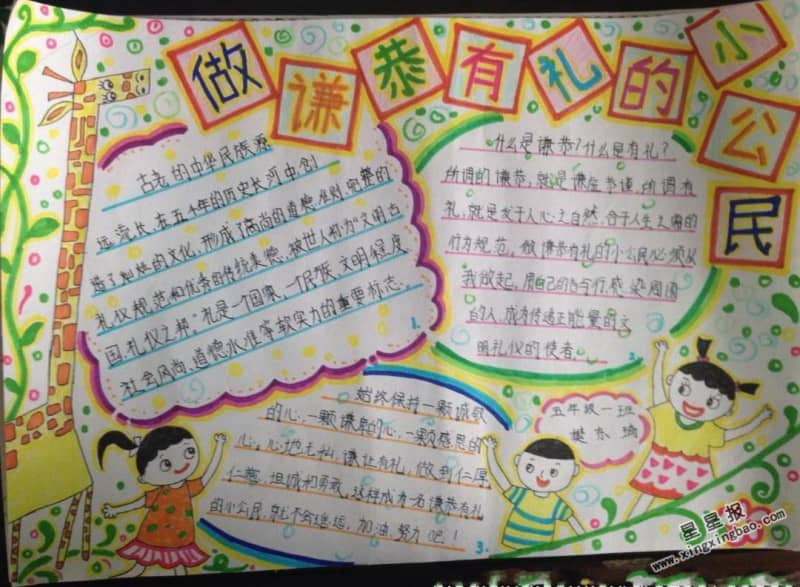 做谦恭有礼的小公民
古老的中华民族源
远流长,在五千年的历史长河中,创
造了灿烂的文化,形成了高尚的道德准则、完整的
礼仪规范和优秀的传统美德,被世人称为“文明古
国,礼仪之邦。”礼是一个国家、一个民族、文明程度、
社会风尚、道德水准等软实力的重要标志。
1.
什么是谦恭?什么是有礼?
所谓的谦恭,就是谦虚恭谨,所谓有
礼,就是发于人心之自然,合于人生之需的
行为规范。做谦恭有礼的小公民必须从
我做起,用自己的言行感染周围
的人,成为传递正能量的文
明礼仪的使者。
2.
始终保持一颗诚敬
的心,一颗谦卑的心,一颗感恩的
心,心地无私,谦让有礼,做到仁厚
仁慈,坦诚和勇敢,这样成为一名谦恭有礼
的小公民,就不会遥远,加油,努力吧!
3.
五年级一班
樊东瑜
星星报
www.xingxingbao.com